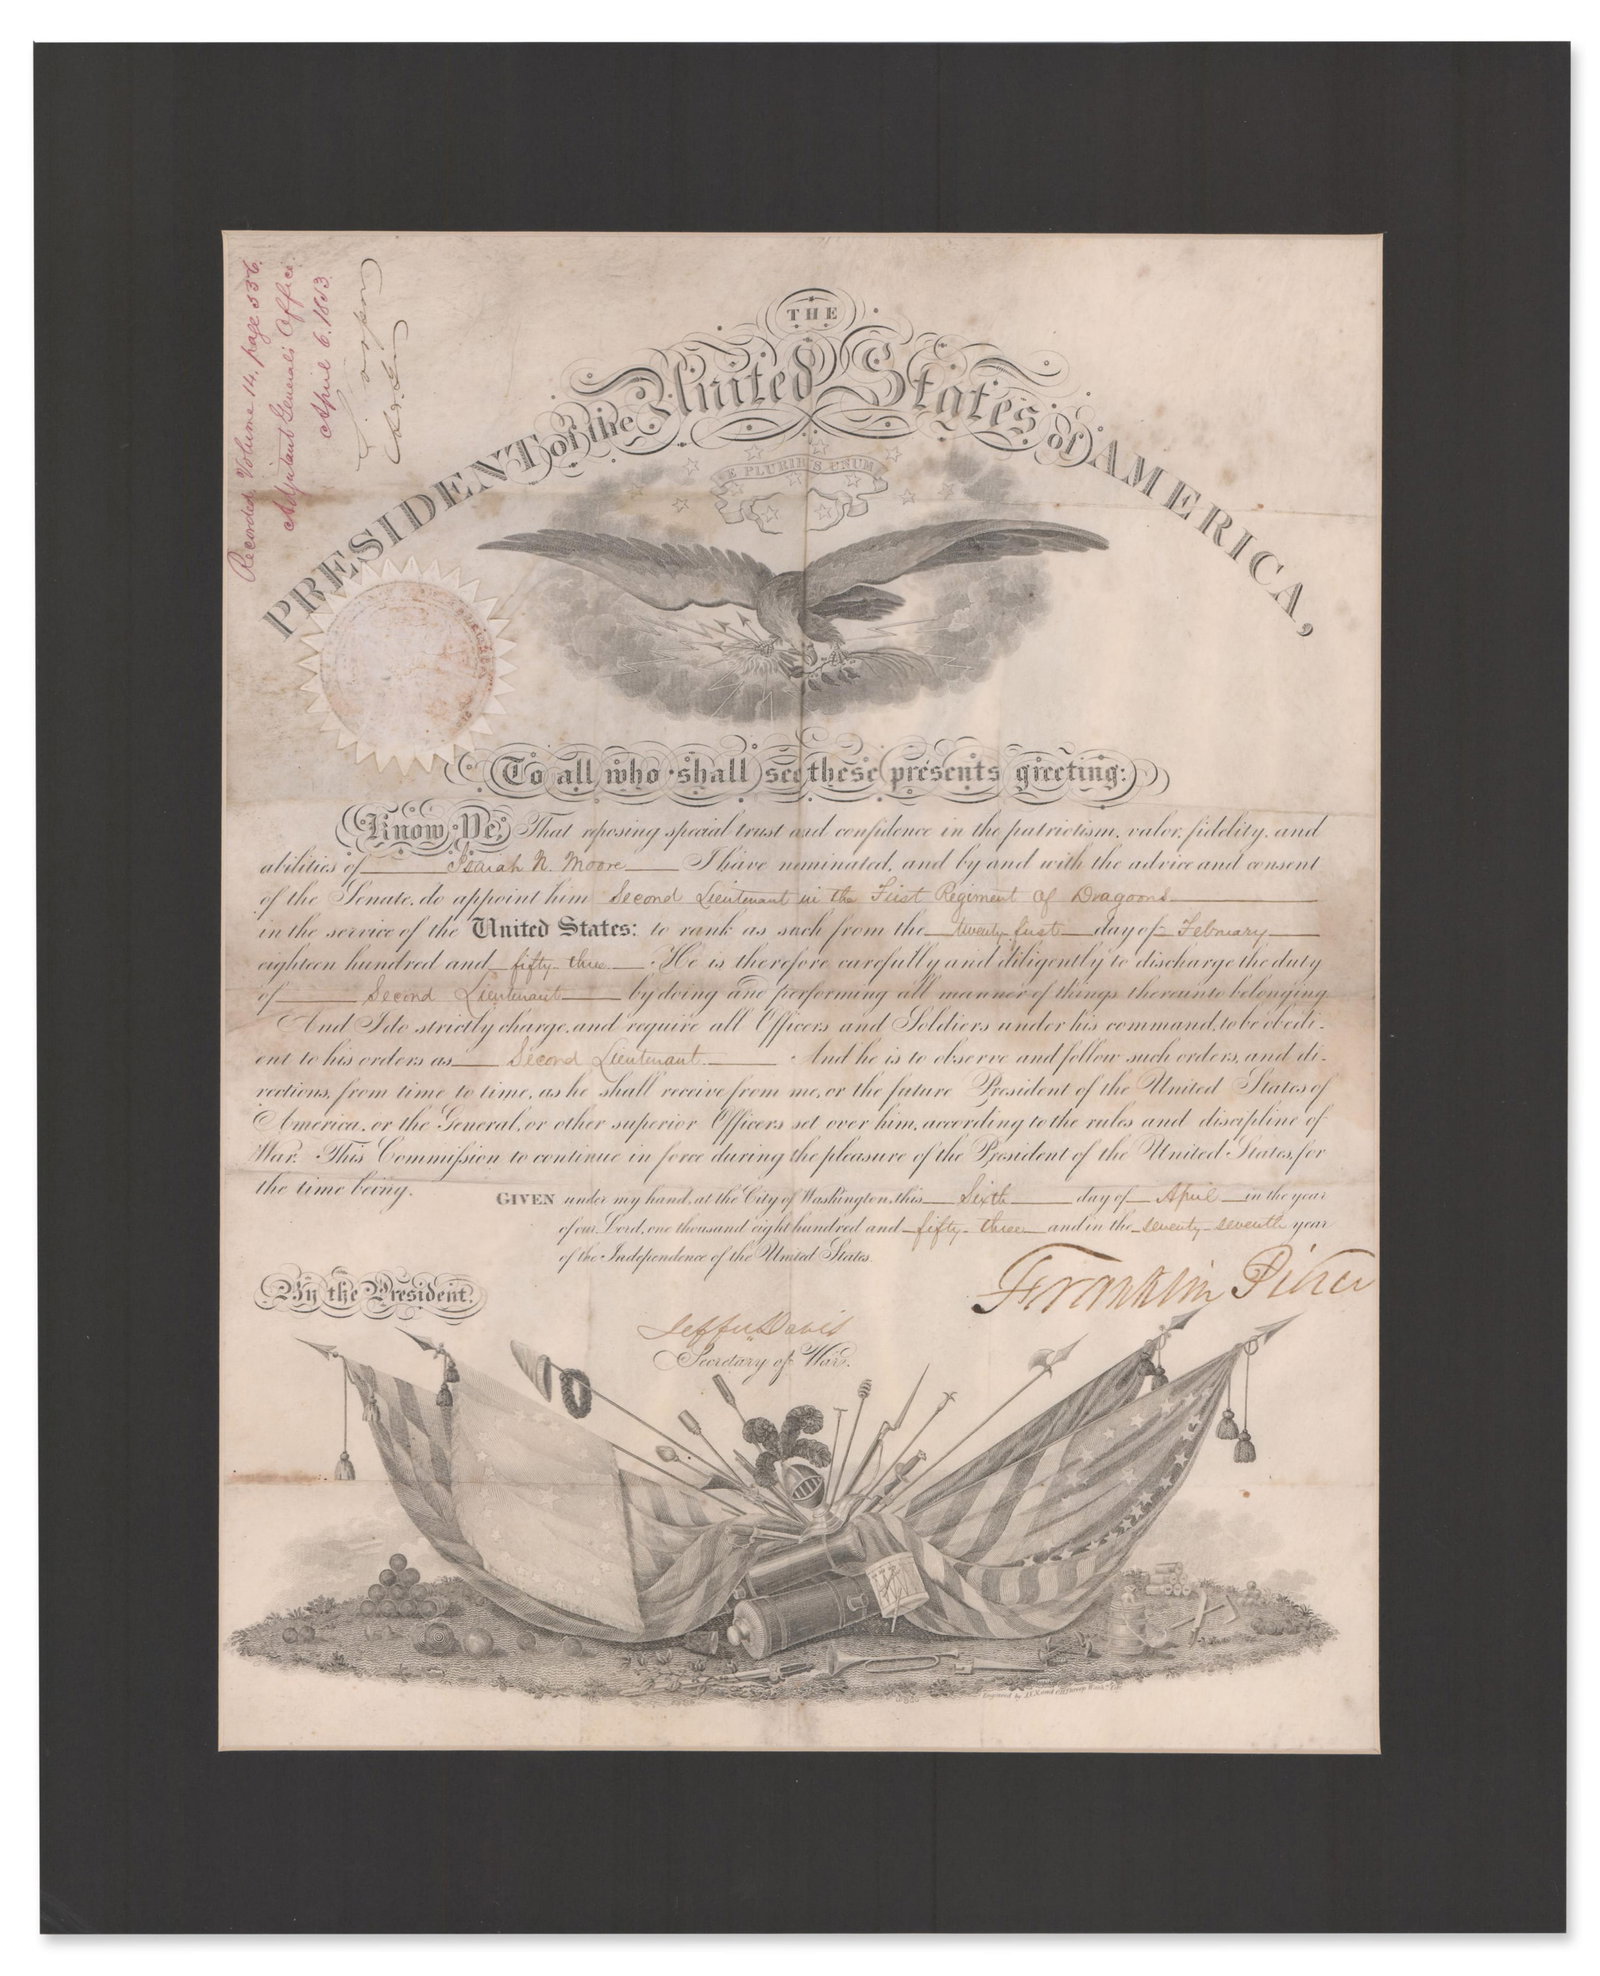 Recorded Volume 14, page 536.
Adjutant General's Office.
April 6. 1853
THE
PRESIDENT of the United States of AMERICA,
E PLURIBUS UNUM
To all who shall see these presents greeting:
Know Ye, That reposing special trust and confidence in the patriotism, valor, fidelity, and
abilities of Isaiah N. Moore I have nominated, and by and with the advice and consent
of the Senate, do appoint him Second Lieutenant in the First Regiment of Dragoons
in the service of the United States: to rank as such from the twenty first day of February
eighteen hundred and fifty three. He is therefore carefully and diligently to discharge the duty
of Second Lieutenant by doing and performing all manner of things thereunto belonging
And I do strictly charge, and require all Officers and Soldiers under his command, to be obedi-
ent to his orders as Second Lieutenant. And he is to observe and follow such orders, and di-
rections, from time to time, as he shall receive from me, or the future President of the United States of
America, or the General, or other superior Officers set over him, according to the rules and discipline of
War. This Commission to continue in force during the pleasure of the President of the United States, for
the time being.
GIVEN under my hand, at the City of Washington, this Sixth day of April in the year
of our Lord, one thousand eight hundred and fifty three and in the seventy seventh year
of the Independence of the United States.
By the President.
Franklin Pierce
Jeffn. Davis
Secretary of War.
Engraved by